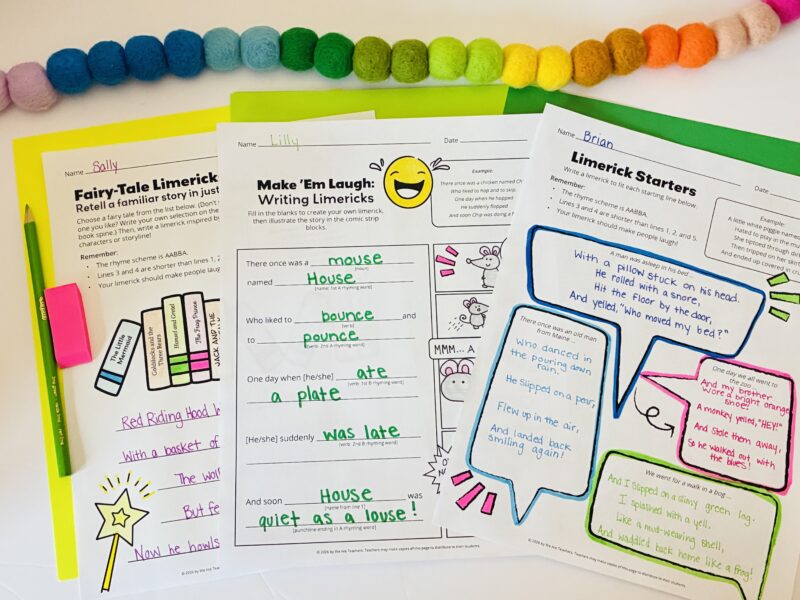 Name Sally
Fairy-Tale Limerick
Retell a familiar story in just
Choose a fairy tale from the list below. (Don't
one you like? Write your own selection on the
book spine.) Then, write a limerick inspired by
characters or storyline!
Remember:
• The rhyme scheme is AABBA.
• Lines 3 and 4 are shorter than lines 1, 2
• Your limerick should make people laugh!
The Little Mermaid
Goldilocks and the Three Bears
Hansel and Gretel
The Frog Prince
JACK AND THE
Red Riding Hood
With a basket of
The wol
But fe
Now he howls
Name Lilly Date
Make 'Em Laugh:
Writing Limericks
Fill in the blanks to create your own limerick,
then illustrate the story in the comic strip
blocks.
Example:
There once was a chicken named
Who liked to hop and to skip.
One day when he hopped
He suddenly flopped
And soon Chip was doing a
There once was a mouse
(noun)
named House
(name: 1st A rhyming word)
Who liked to bounce and
(verb)
to pounce
(verb: 2nd A rhyming word)
One day when [he/she] ate
(verb: 1st B rhyming word)
a plate
[He/she] suddenly was late
(verb: 2nd B rhyming word)
And soon House was
(name from line 1)
quiet as a louse!
(punchline ending in A rhyming word)
MMM... A
© 2026 by We Are Teachers. Teachers may make copies of this page to distribute to their students.
Name Brian Date
Limerick Starters
Write a limerick to fit each starting line below.
Remember:
• The rhyme scheme is AABBA.
• Lines 3 and 4 are shorter than lines 1, 2, and 5.
• Your limerick should make people laugh!
Example:
A little white piggie named
Hated to play in the mu
She tiptoed through di
Then tripped on her skir
And ended up covered in cr
A man was asleep in his bed ...
With a pillow stuck on his head.
He rolled with a snore,
Hit the floor by the door,
And yelled, "Who moved my bed?"
There once was an old man
from Maine ...
Who danced in
the pouring down
rain.
He slipped on a pear,
Flew up in the air,
And landed back
smiling again!
One day we all went to
the zoo ...
And my brother
wore a bright orange
shoe!
A monkey yelled, "HEY!"
And stole them away,
So he walked out with
the blues!
We went for a walk in a bog ...
And I slipped on a slimy green log.
I splashed with a yell,
Like a mud-wearing shell,
And waddled back home like a frog!
© 2026 by We Are Teachers. Teachers may make copies of this page to distribute to their students.